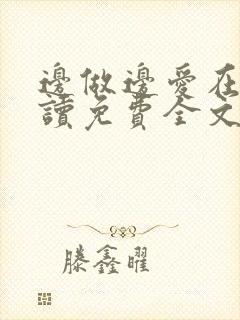 邊做邊愛在
讀免費全文
滕鑫曜